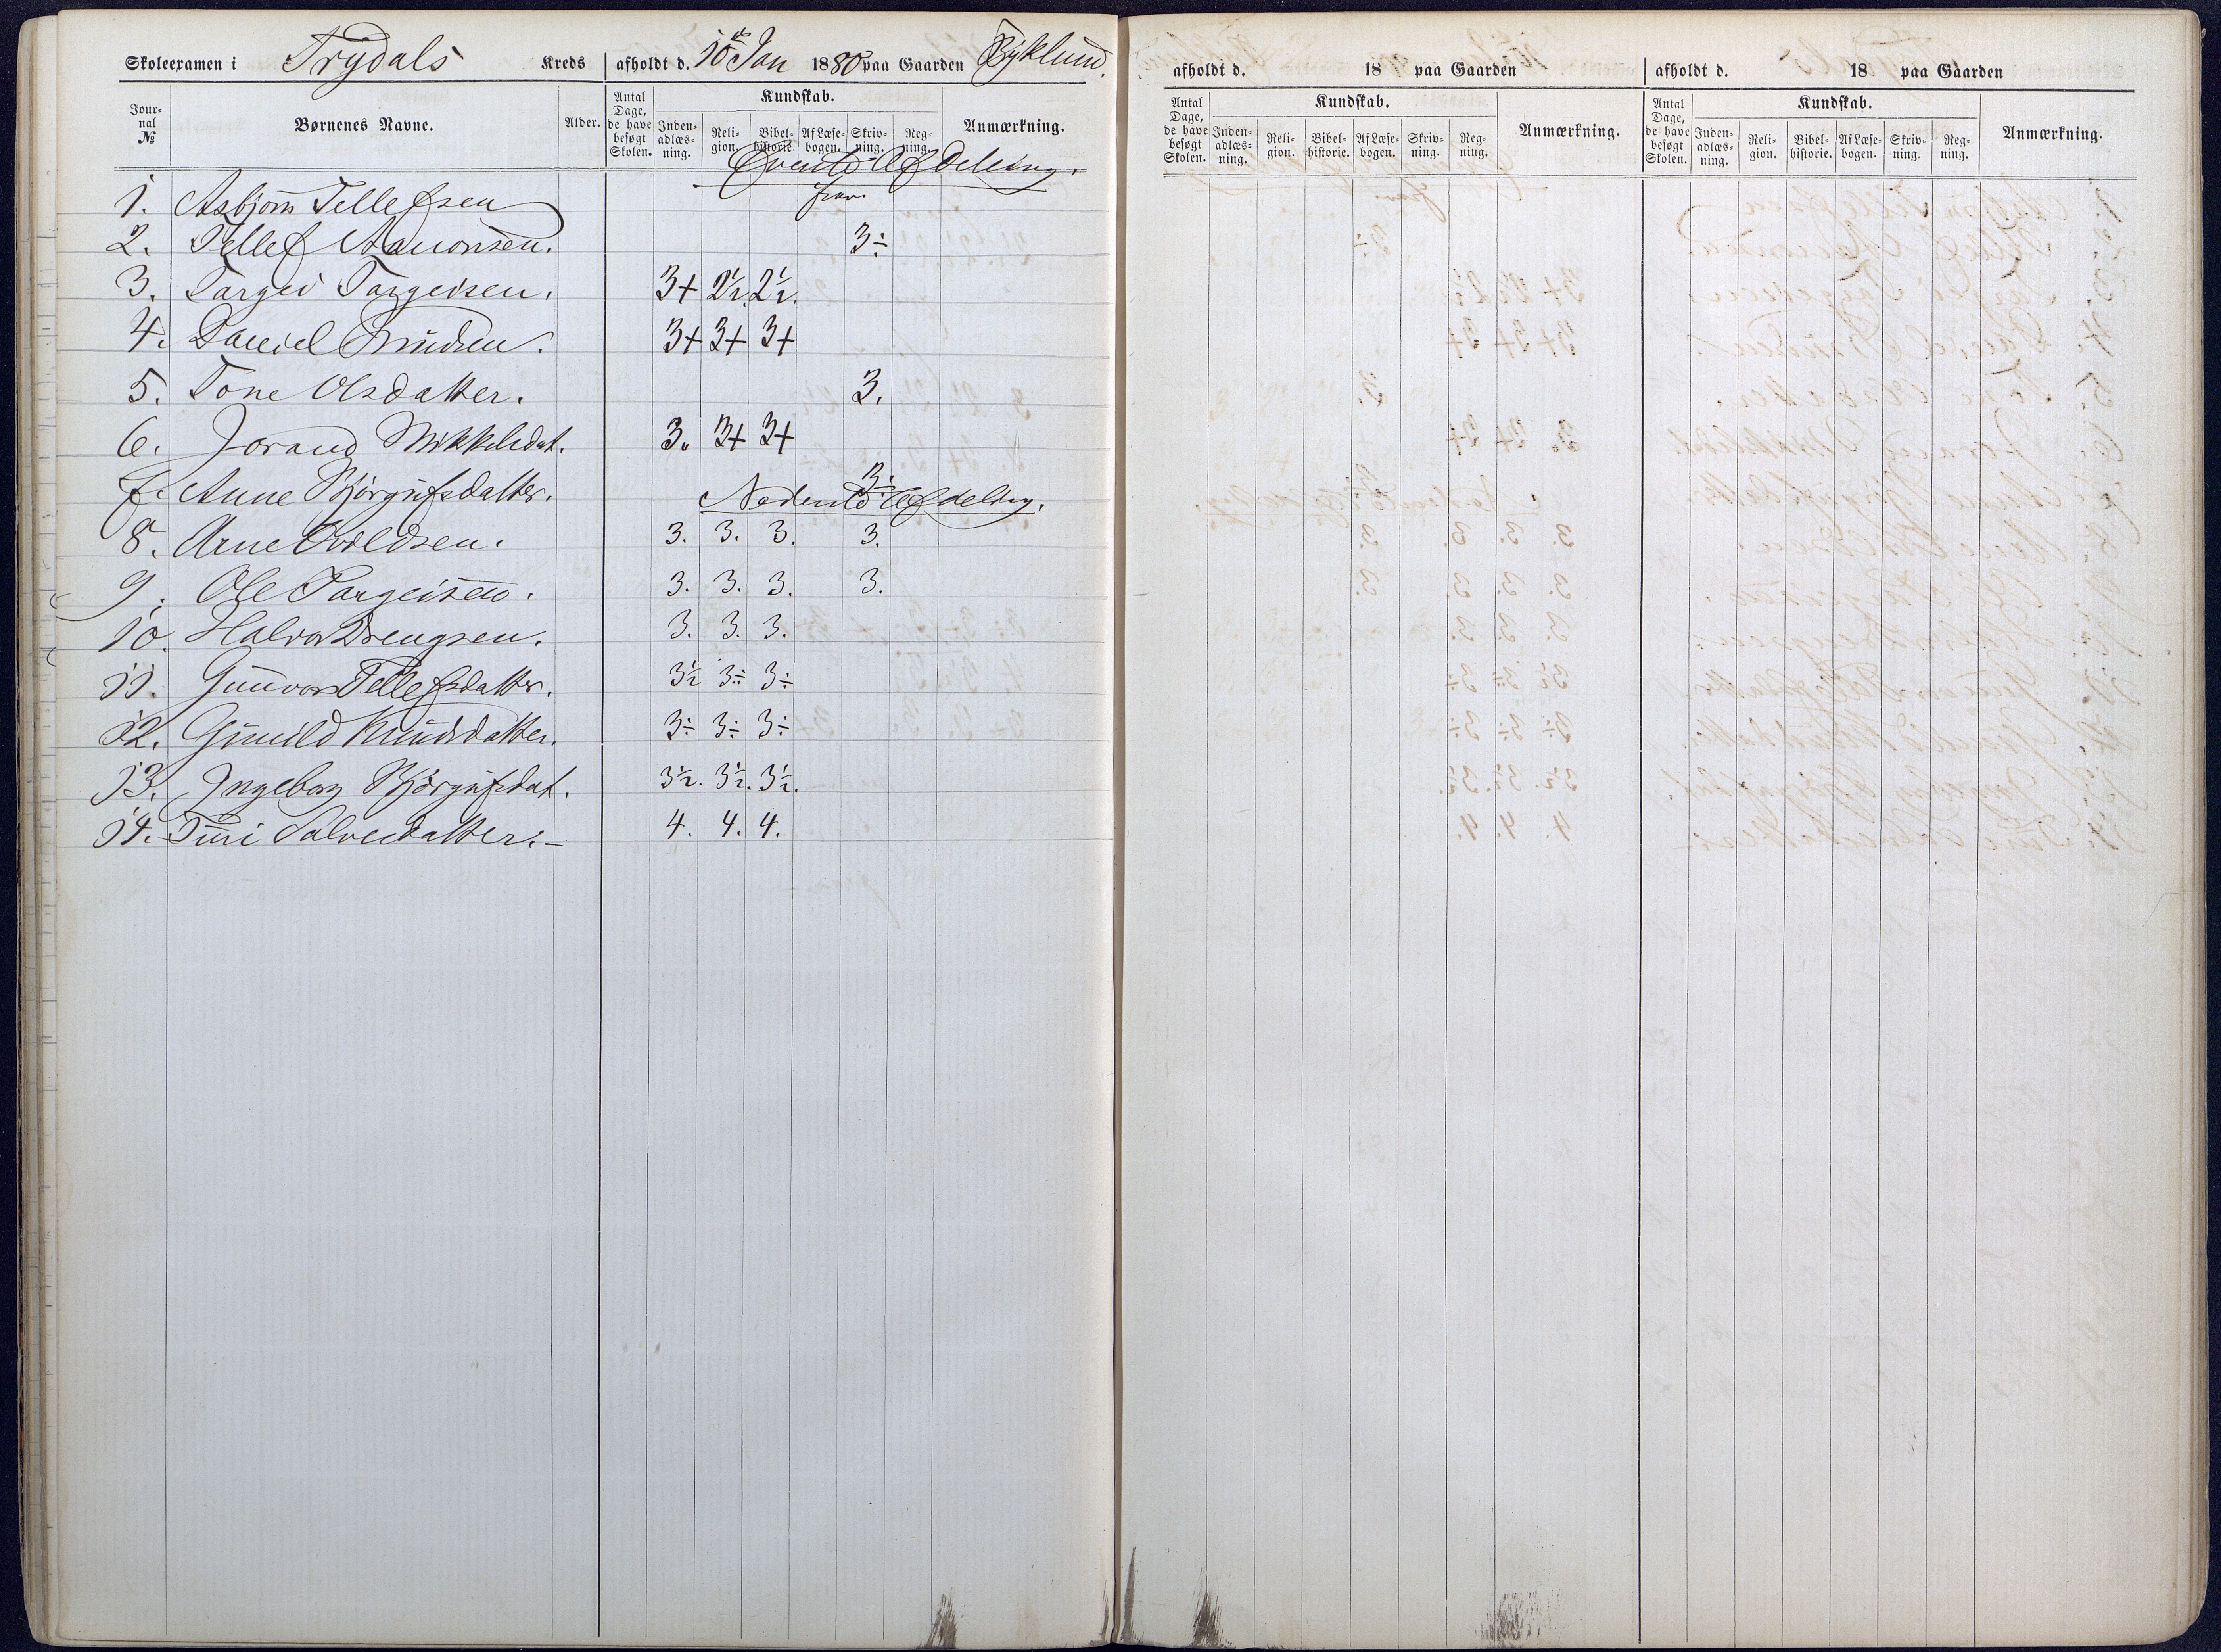 Skoleexamen i Trydals Kreds afholdt d. 10de Jan 1880 paa Gaarden Byklund.
Journal № Børnenes Navne. Alder. Antal Dage, de have besøgt Skolen. Kundskab. Indenadlæsning. Religion. Bibelhistorie. Af Læsebogen. Skrivning. Regning. Anmærkning.
Øverste Afdeling.
1. Asbjørn Tellefsen frav.
2. Tellef Aanonsen. 3÷
3. Targei Targeisen. 3+ 2½. 2½.
4. Daniel Knudsen. 3+ 3+ 3+
5. Tone Olsdatter. 3.
6. Jorand Mikkelsdat. 3. 3+ 3+
7. Anne Bjørgufsdatter. 3÷
Nederste Afdeling.
8. Arne 3. 3. 3. 3.
9. Ole Targeisen. 3. 3. 3. 3.
10. Halvor Drengsen. 3. 3. 3.
11. Gunvor Tellefsdatter. 3½ 3÷ 3÷
12. Gunild Knudsdatter. 3÷ 3÷ 3÷
13. Ingeborg Bjørgufsdat. 3½. 3½. 3½.
14. Turi Salvesdatter.- 4. 4. 4.
afholdt d. 18 paa Gaarden
Antal Dage, de have besøgt Skolen. Kundskab. Indenadlæsning. Religion. Bibelhistorie. Af Læsebogen. Skrivning. Regning. Anmærkning.
afholdt d. 18 paa Gaarden
Antal Dage, de have besøgt Skolen. Kundskab. Indenadlæsning. Religion. Bibelhistorie. Af Læsebogen. Skrivning. Regning. Anmærkning.